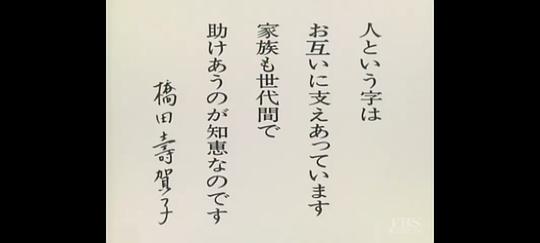 人という字は
お互いに支えあっています
家族も世代間で
助けあうのが知恵なのです
橋田壽賀子
TBS